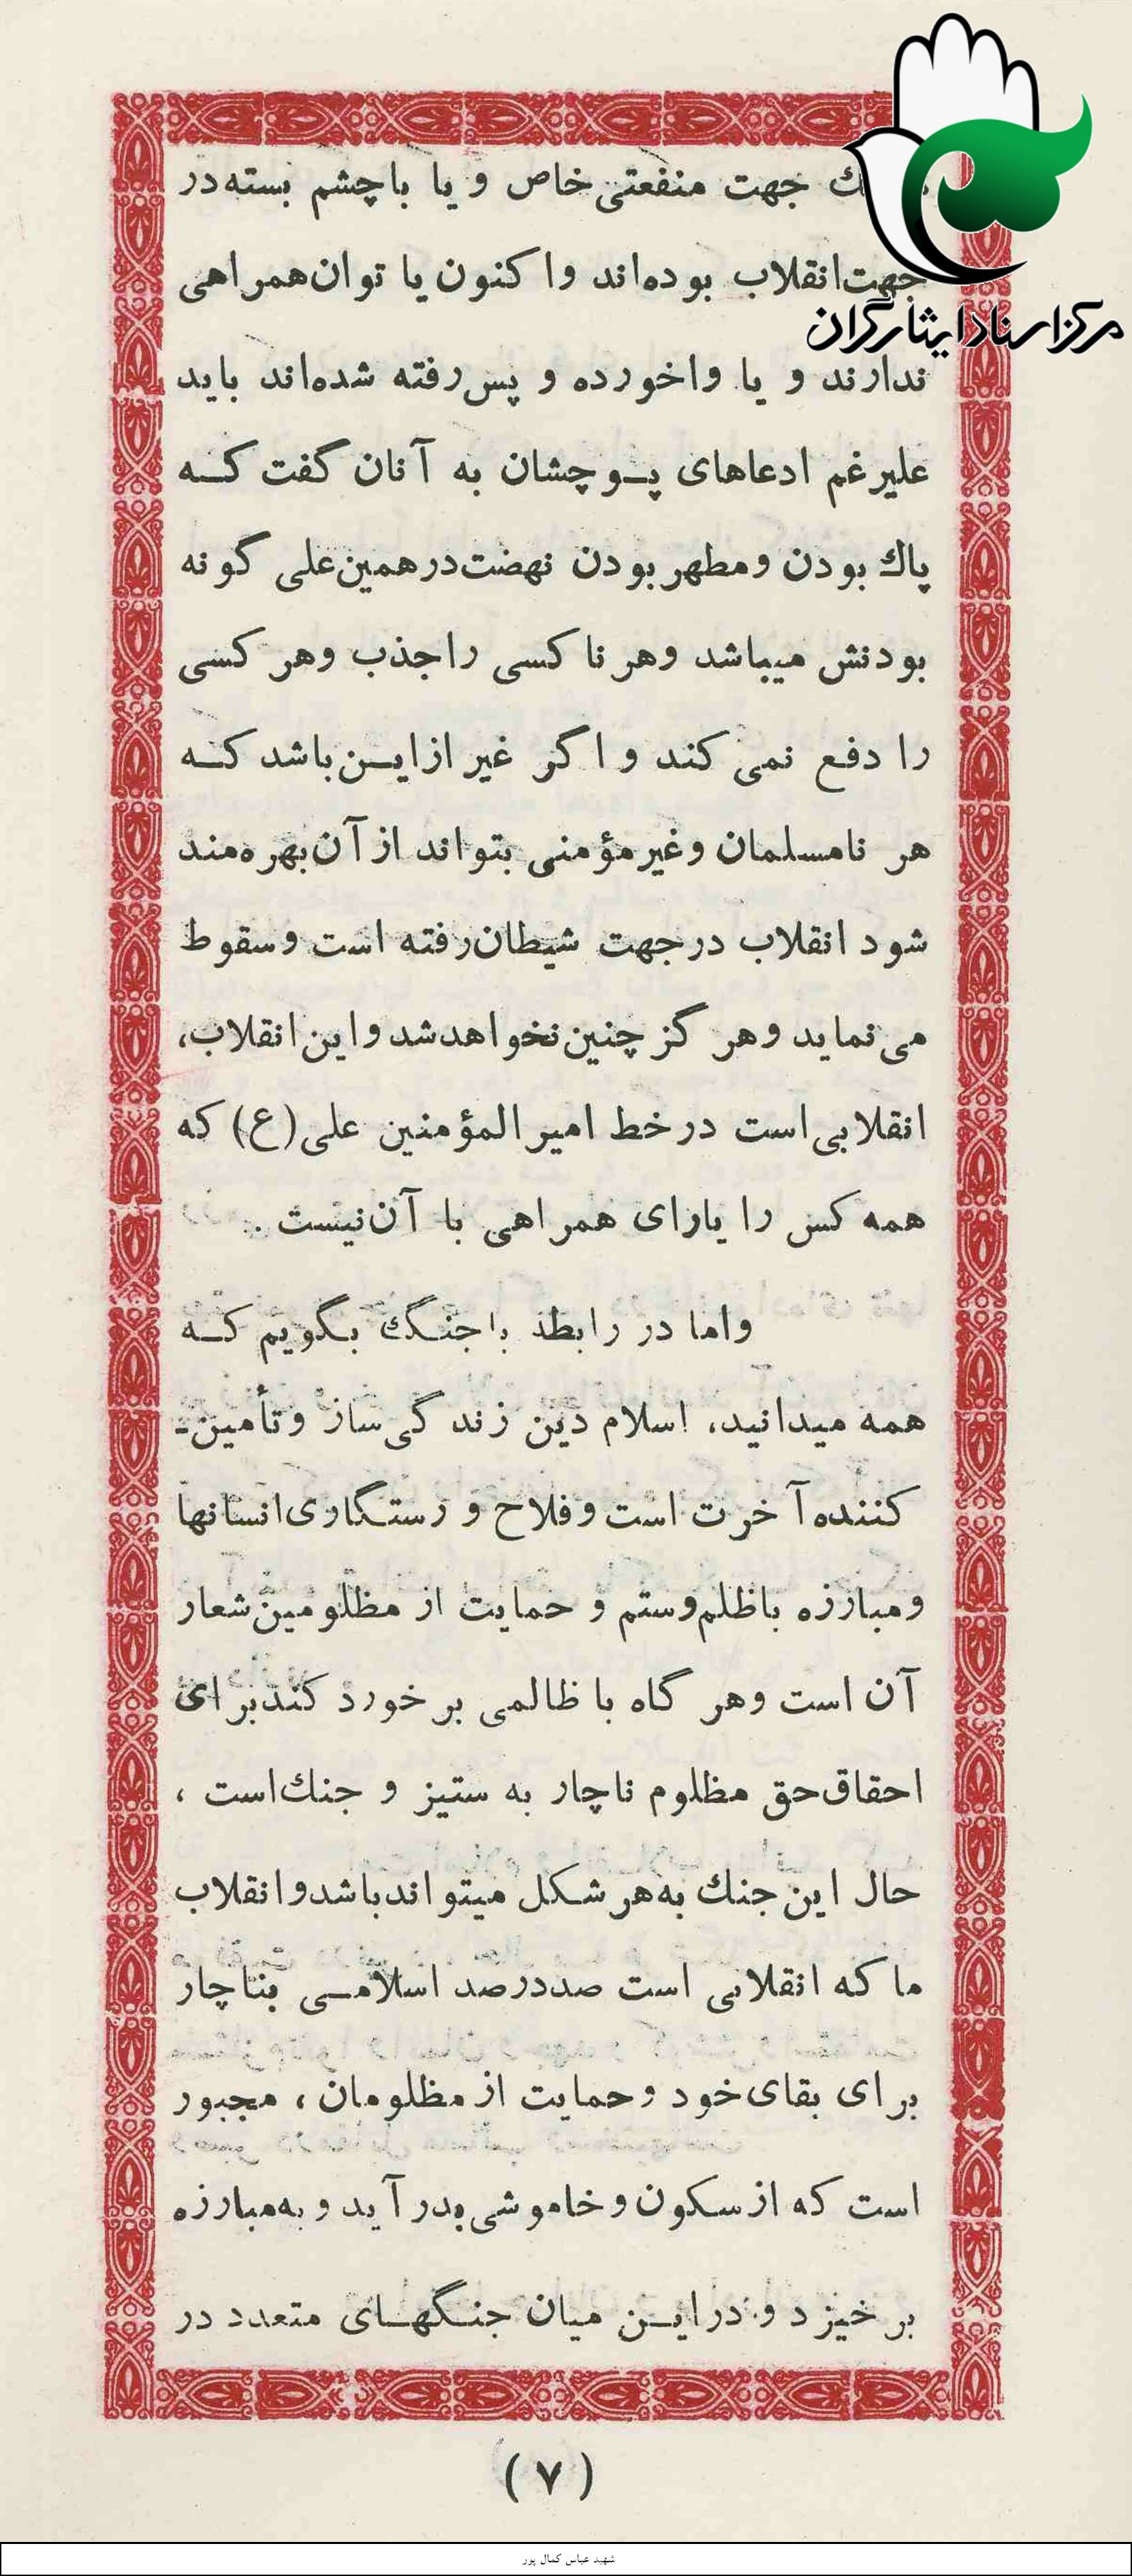 جهت منفعتی خاص و یا باچشم بسته در
جهت انقلاب بوده‌اند واکنون یا توان همراهی
ندارند و یا واخورده و پس رفته شده‌اند باید
علیرغم ادعاهای پـوچشان به آنان گفت کـه
پاك بودن ومطهر بودن نهضت درهمین علی گونه
بودنش میباشد وهر ناکسی راجذب وهر کسی
را دفع نمی‌کند و اگر غیر ازایـن باشد کـه
هر نامسلمان وغیرمؤمنی بتواند از آن بهره‌مند
شود انقلاب درجهت شیطان رفته است وسقوط
می‌نماید وهر گز چنین نخواهدشد واین انقلاب،
انقلابی است درخط امیرالمؤمنین علی(ع) که
همه کس را یارای همراهی با آن نیست .
واما در رابطه باجنـگ بـگویم کـه
همه میدانید، اسلام دین زندگی‌ساز وتأمین-
کننده آخرت است وفلاح و رستـگاری انسانها
ومبارزه باظلم‌وستم و حمایت از مظلومین شعار
آن است وهر گاه با ظالمی برخورد کندبرای
احقاق حق مظلوم ناچار به ستیز و جنك است ،
حال این جنك به‌هر شکل میتواندباشدوانقلاب
ما که انقلابی است صددرصد اسلامـی بناچار
برای بقای خود وحمایت از مظلومان ، مجبور
است که از سکون وخاموشی بدر آید و به‌مبارزه
برخیزد و درایـن میان جنـگهـای متعدد در
(۷)
مرکز اسناد ایثارگران
شهید عباس کمال پور